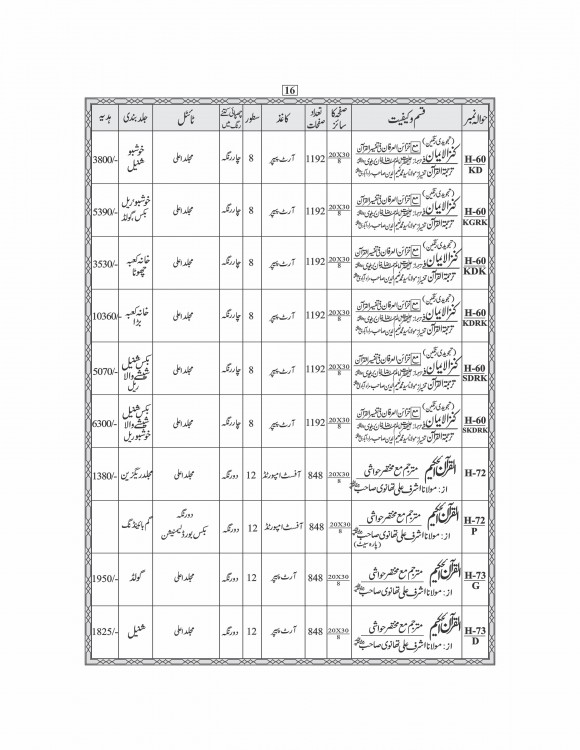 16
حوالہ نمبر قسم و کیفیت صفحہ کا سائز تعداد صفحات کاغذ سطور چھپائی کتنے رنگ میں ٹائٹل جلد بندی ہدیہ
H-60 KD (تجویدی رنگین) مع خزائن العرفان فی تفسیر القرآن کنز الایمان ترجمۃ القرآن 20X30/8 1192 آرٹ پیپر 8 چار رنگہ مجلد اعلیٰ خوشبو شنیل 3800/-
H-60 KGRK (تجویدی رنگین) مع خزائن العرفان فی تفسیر القرآن کنز الایمان ترجمۃ القرآن 20X30/8 1192 آرٹ پیپر 8 چار رنگہ مجلد اعلیٰ خوشبو ریل بکس گولڈ 5390/-
H-60 KDK (تجویدی رنگین) مع خزائن العرفان فی تفسیر القرآن کنز الایمان ترجمۃ القرآن 20X30/8 1192 آرٹ پیپر 8 چار رنگہ مجلد اعلیٰ خانہ کعبہ چھوٹا 3530/-
H-60 KDRK (تجویدی رنگین) مع خزائن العرفان فی تفسیر القرآن کنز الایمان ترجمۃ القرآن 20X30/8 1192 آرٹ پیپر 8 چار رنگہ مجلد اعلیٰ خانہ کعبہ بڑا 10360/-
H-60 SDRK (تجویدی رنگین) مع خزائن العرفان فی تفسیر القرآن کنز الایمان ترجمۃ القرآن 20X30/8 1192 آرٹ پیپر 8 چار رنگہ مجلد اعلیٰ بکس شنیل شیشے والا ریل 5070/-
H-60 SKDRK (تجویدی رنگین) مع خزائن العرفان فی تفسیر القرآن کنز الایمان ترجمۃ القرآن 20X30/8 1192 آرٹ پیپر 8 چار رنگہ مجلد اعلیٰ بکس شنیل شیشے والا خوشبو ریل 6300/-
H-72 القرآن الحکیم مترجم مع مختصر حواشی از: مولانا اشرف علی تھانوی صاحب 20X30/8 848 آفسٹ امپورٹڈ 12 دو رنگہ مجلد اعلیٰ مجلد ریگزین 1380/-
H-72 P القرآن الحکیم مترجم مع مختصر حواشی از: مولانا اشرف علی تھانوی صاحب (پارہ سیٹ) 20X30/8 848 آفسٹ امپورٹڈ 12 دو رنگہ دو رنگہ بکس بورڈ لیمینیشن گم بائنڈنگ
H-73 G القرآن الحکیم مترجم مع مختصر حواشی از: مولانا اشرف علی تھانوی صاحب 20X30/8 848 آرٹ پیپر 12 دو رنگہ مجلد اعلیٰ گولڈ 1950/-
H-73 D القرآن الحکیم مترجم مع مختصر حواشی از: مولانا اشرف علی تھانوی صاحب 20X30/8 848 آرٹ پیپر 12 دو رنگہ مجلد اعلیٰ شنیل 1825/-